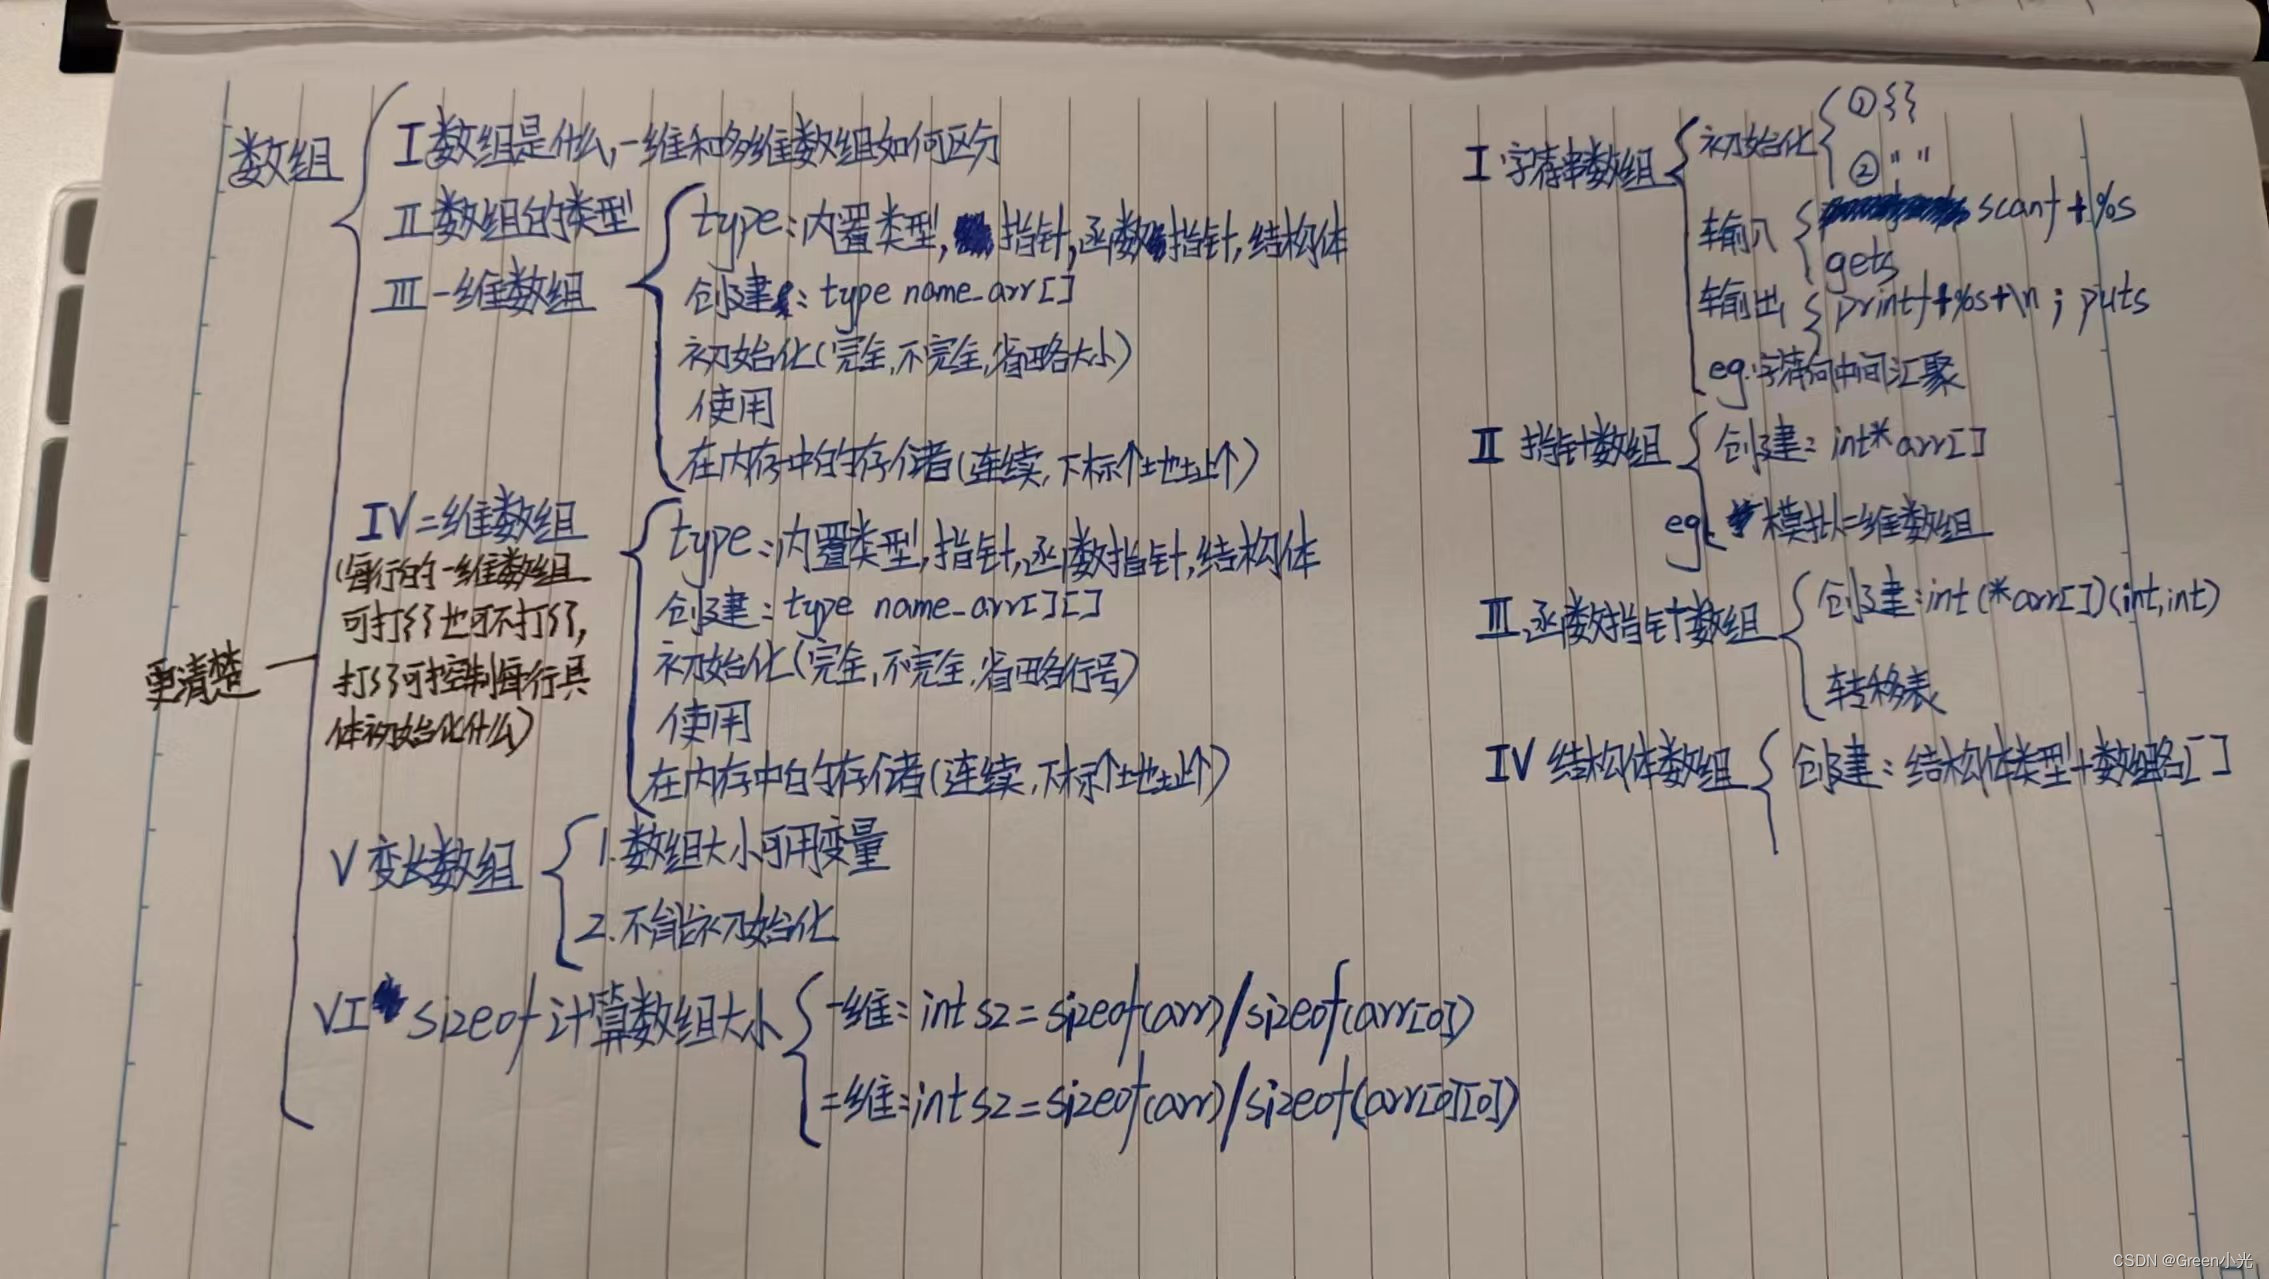 数组
I 数组是什么,一维和多维数组如何区分
II 数组的类型
III 一维数组
type:内置类型,指针,函数指针,结构体
创建:type name_arr[]
初始化(完全,不完全,省略大小)
使用
在内存中的存储(连续,下标↑地址↑)
IV 二维数组
(每行的一维数组
可打{}也可不打{},
打{}可控制每行具
体初始化什么)
更清楚
type:内置类型,指针,函数指针,结构体
创建:type name_arr[][]
初始化(完全,不完全,省略行号)
使用
在内存中的存储(连续,下标↑地址↑)
V 变长数组
1.数组大小可用变量
2.不能初始化
VI sizeof计算数组大小
一维:int sz=sizeof(arr)/sizeof(arr[0])
二维:int sz=sizeof(arr)/sizeof(arr[0][0])
I 字符串数组
初始化
① {}
② " "
输入
scanf+%s
gets
输出
printf+%s+\n;puts
eg:字符向中间汇聚
II 指针数组
创建:int* arr[]
eg:模拟二维数组
III.函数指针数组
创建:int(*arr[])(int,int)
转移表
IV 结构体数组
创建:结构体类型+数组名[]
CSDN @Green小光